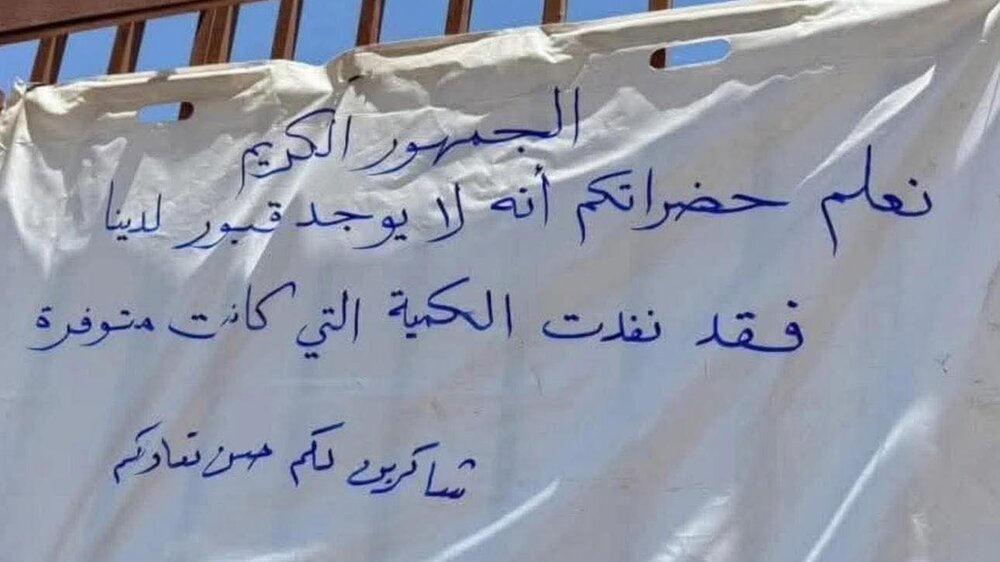 الجمهور الكريم
نعلم حضراتكم أنه لا يوجد قبور لدينا
فقد نفذت الكمية التي كانت متوفرة
شاكرين لكم حسن تعاونكم